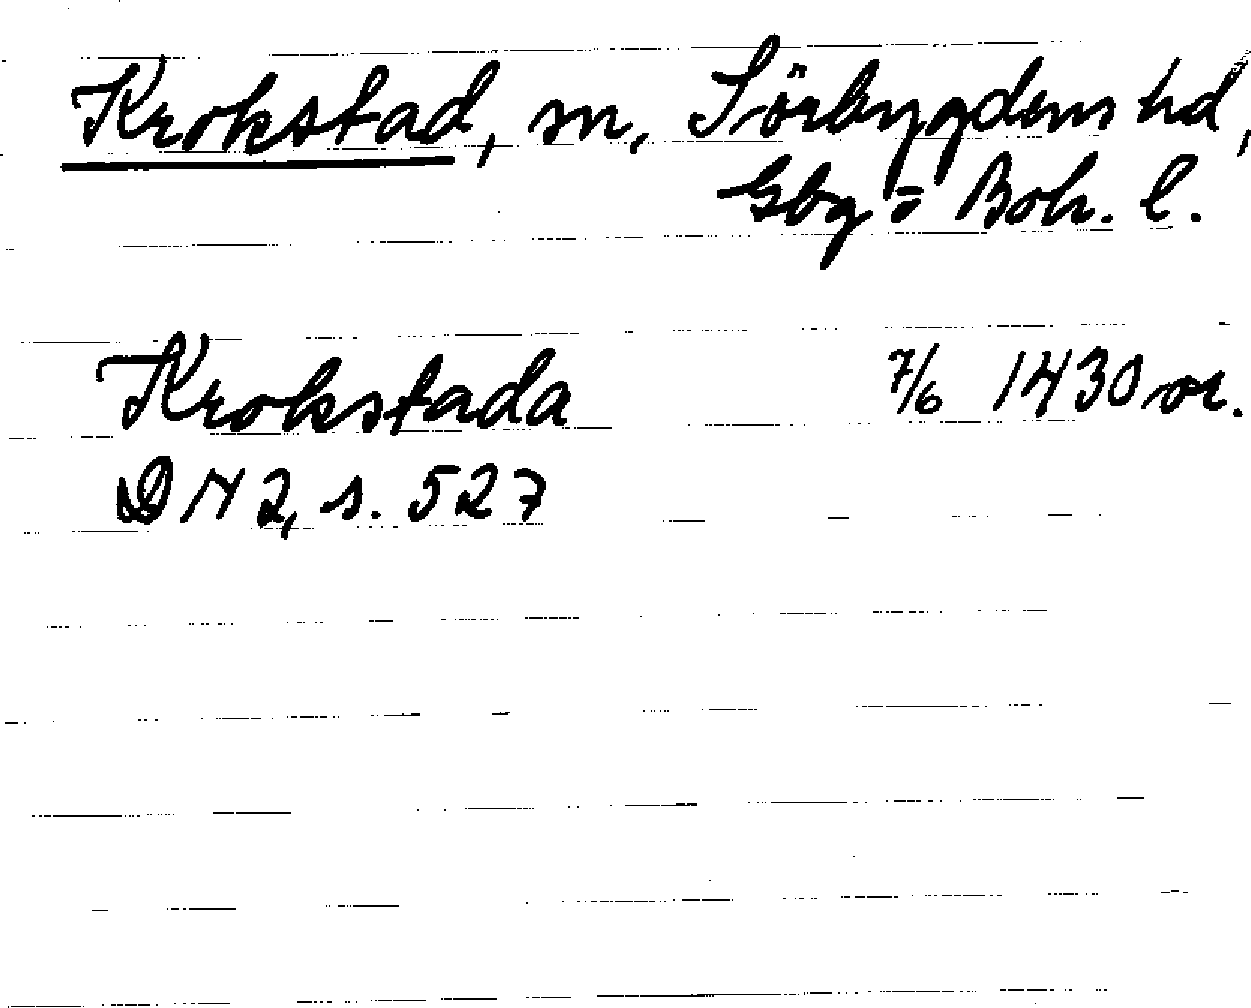 Krokstad, sn, Sörbygdens hd,
Gbg = Boh. l.
Krokstada 7/6 1430 or.
DN 2, s. 527